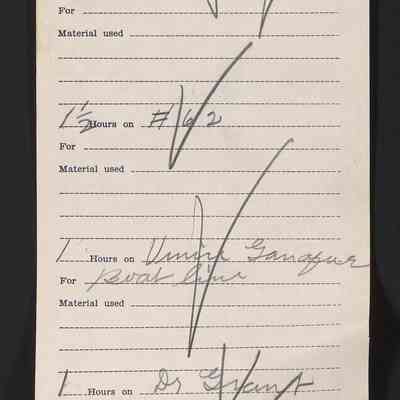 For
Material used
1 1/2 Hours on #62
For
Material used
1 Hours on
For Boat line
Material used
1 Hours on Dr Grant